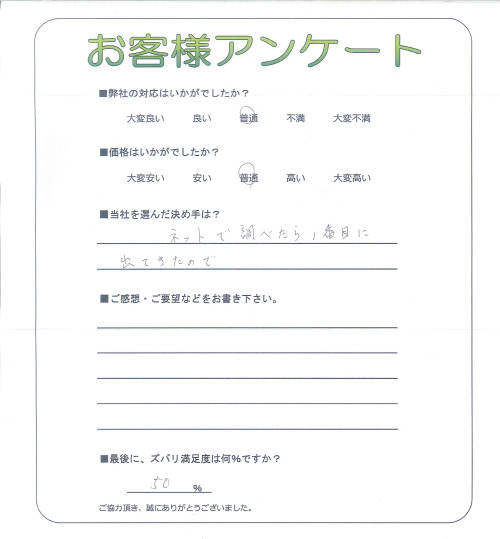 お客様アンケート
■弊社の対応はいかがでしたか?
大変良い 良い 普通 不満 大変不満
■価格はいかがでしたか?
大変安い 安い 普通 高い 大変高い
■当社を選んだ決め手は?
ネットで調べたら1番目に
出てきたので
■ご感想・ご要望などをお書き下さい。
■最後に、ズバリ満足度は何%ですか?
50 %
ご協力頂き、誠にありがとうございました。